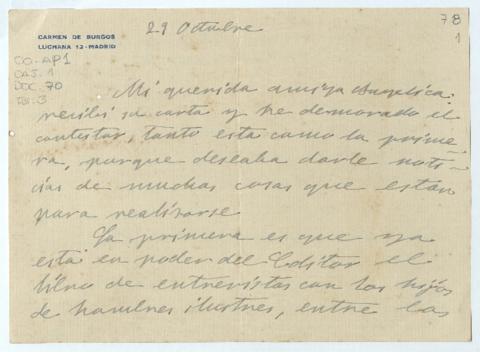 29 Octubre
78
1
CARMEN DE BURGOS
LUCHANA 12-MADRID
CO-AP1
CAJ. 1
DOC. 70
TBI:3
Mi querida amiga Angelica:
recibi su carta y he demorado el
contestar, tanto esta como la prime-
ra, porque deseaba darle noti-
cias de muchas cosas que estan
para realizarse
La primera es que ya
está en poder del Editor el
libro de entrevistas con los hijos
de hombres ilustres, entre las